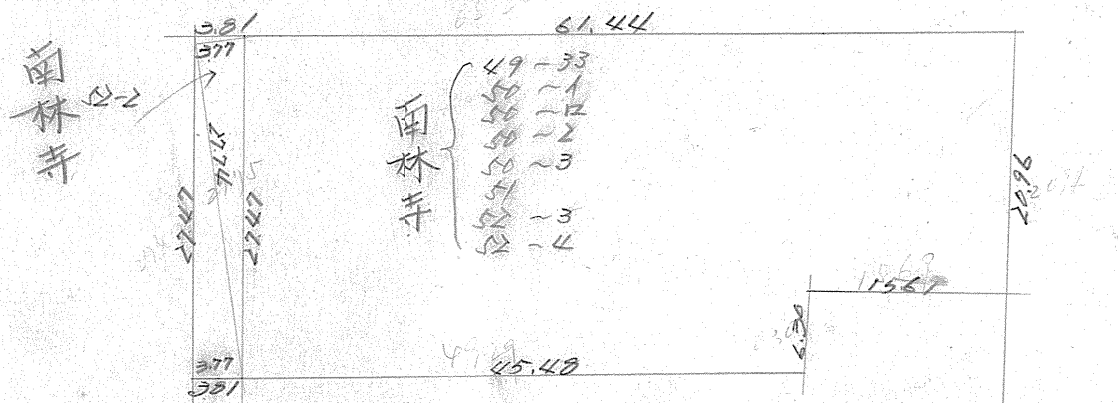 3.81
61.44
3.77
南林寺
52-2
南林寺
49~33
50~1
50~12
50~2
50~3
51
52~3
52~4
27.74
27.47
27.47
20.96
6.30
3.77
3.81
45.48